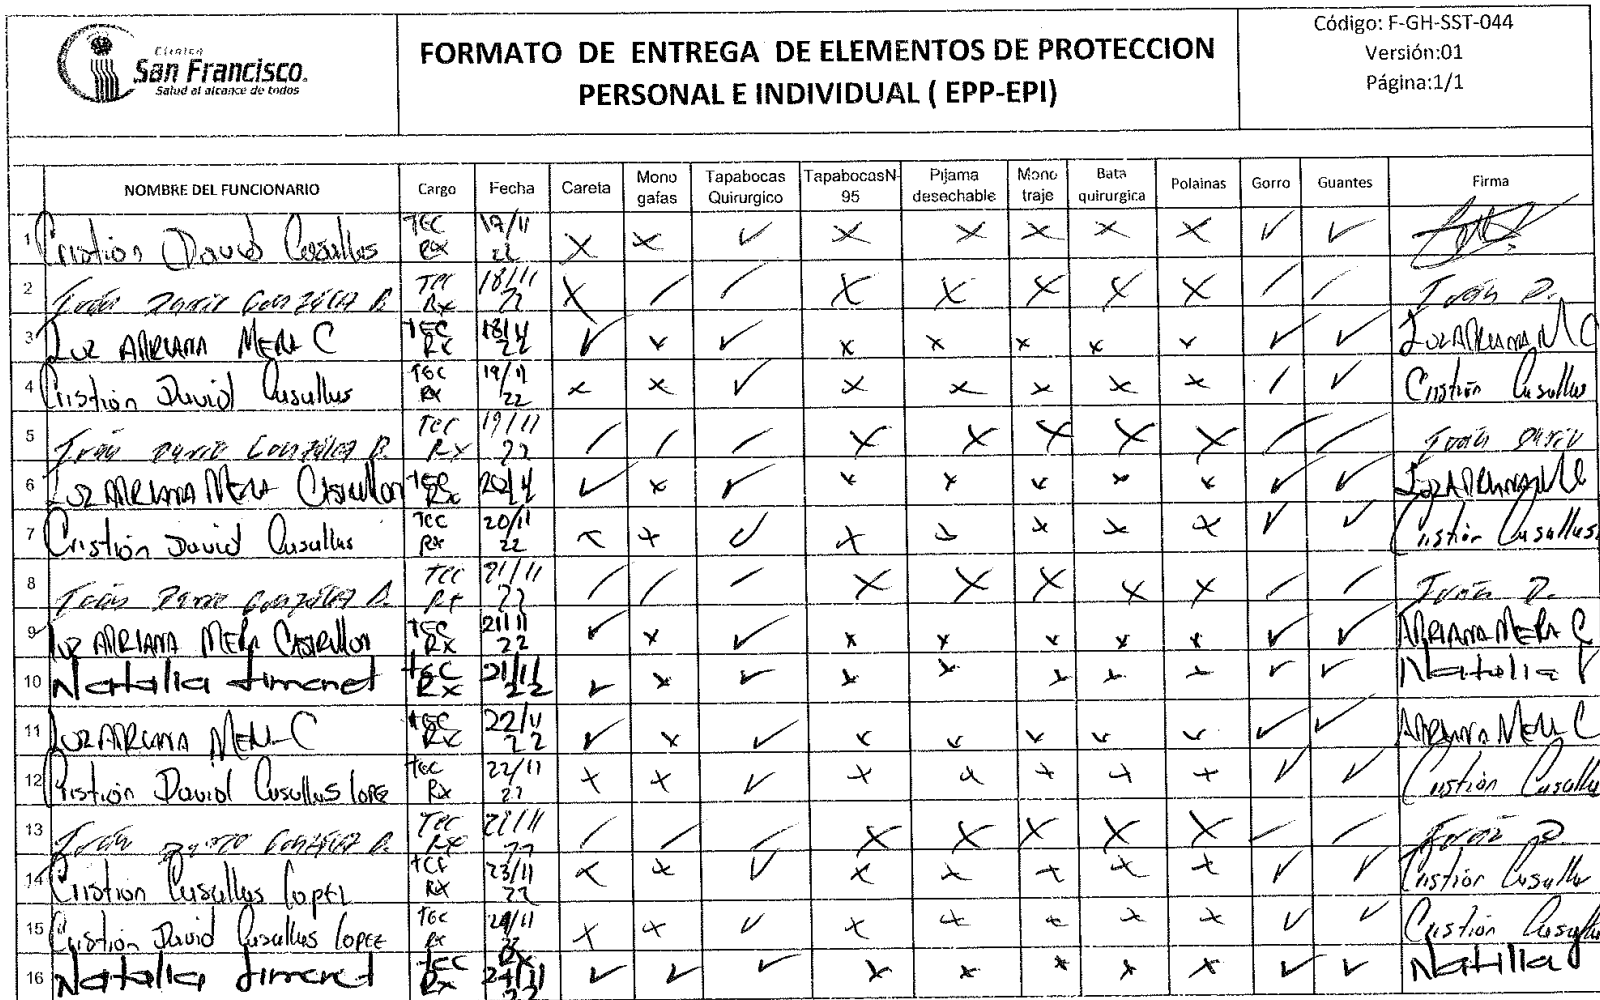 Clínica
San Francisco.
Salud al alcance de todos
FORMATO DE ENTREGA DE ELEMENTOS DE PROTECCION
PERSONAL E INDIVIDUAL ( EPP-EPI)
Código: F-GH-SST-044
Versión:01
Página:1/1
NOMBRE DEL FUNCIONARIO Cargo Fecha Careta Mono gafas Tapabocas Quirurgico TapabocasN-95 Pijama desechable Mono traje Bata quirurgica Polainas Gorro Guantes Firma
1 Cristián David TEC RX /11 22 X X ✓ X X X X X ✓ ✓
2 Iván Darío González B. TEC Rx 18/11 22 X / / X X X X X / / Iván D.
3 Luz ADRIANA MERA C TEC Rx 18/11 22 ✓ x ✓ x x x x x ✓ ✓ Luz ADRIANA M C
4 Cristián David TEC RX 19/11 22 x x ✓ x x x x x / ✓ Cristián
5 Iván Darío González B. TEC Rx 19/11 22 / / / X X X X X / / Iván Darío
6 Luz ADRIANA MERA TEC Rx 20/11 ✓ x ✓ x x x x x ✓ ✓ Luz ADRIANA M C
7 Cristián David TEC RX 20/11 22 x x ✓ x x x x x ✓ ✓ Cristián
8 Iván Darío González B. TEC Rx 21/11 22 / / / X X X X X / / Iván D.
9 Luz ADRIANA MERA TEC Rx 21/11 22 ✓ x ✓ x x x x x ✓ ✓ ADRIANA MERA C
10 Natalia Jimenez TEC Rx 21/11 22 ✓ x ✓ x x x x x ✓ ✓ Natalia
11 Luz ADRIANA MERA C TEC Rx 22/11 22 ✓ x ✓ x x x x x ✓ ✓ ADRIANA MERA C
12 Cristián David LOPEZ TEC Rx 22/11 22 x x ✓ x x x x x ✓ ✓ Cristián
13 Iván Darío González B. TEC Rx 22/11 22 / / / X X X X X / / Iván D.
14 Cristián LOPEZ TEC RX 23/11 22 x x ✓ x x x x x ✓ ✓ Cristián
15 Cristián David LOPEZ TEC Rx 24/11 22 x x ✓ x x x x x ✓ ✓ Cristián
16 Natalia Jimenez TEC Rx 24/11 22 ✓ ✓ ✓ x x x x x ✓ ✓ Natalia J